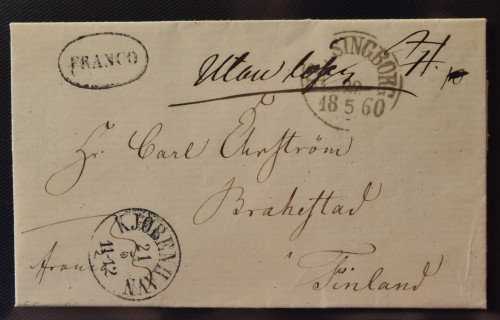 FRANCO
Utan
HELSINGBORG
18 5 60
Hr. Carl Ehrström
Brahestad
i Finland
KJØBENHAVN
21
11-12
franco